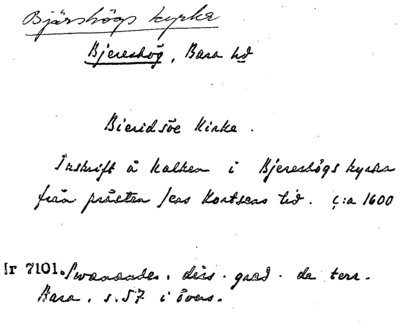 Bjärshögs kyrka
Bjereshög, Bara hd
Bieridsöe Kirke.
Inskrift å kalken i Bjereshögs kyrka
från prästen Jens Knutsens tid. c:a 1600
Nr 7101. Swanander. diss. grad. de terr.
Bara. s. 57 i övers.